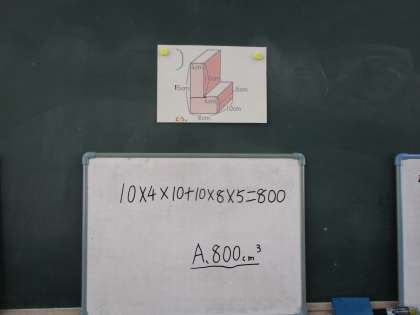 4cm
15cm
5cm
10cm
8cm
10×4×10+10×8×5=800
A. 800cm³